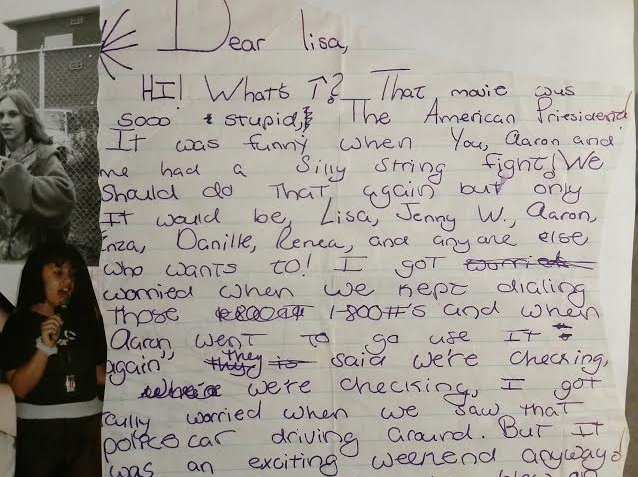 Dear lisa,
HI! What's T? That movie was
sooo stupid, The American Priesident!
It was funny when You, Aaron and
me had a silly string fight! We
should do that again but only
It would be, Lisa, Jenny W., Aaron,
Enza, Danille, Renea, and anyone else
who wants to! I got worried
worried when we kept dialing
those 1-800#'s and when
Aaron went to go use It
again" they said we're checking,
we're checking, I got
really worried when we saw that
police car driving around. But It
was an exciting weekend anyway!